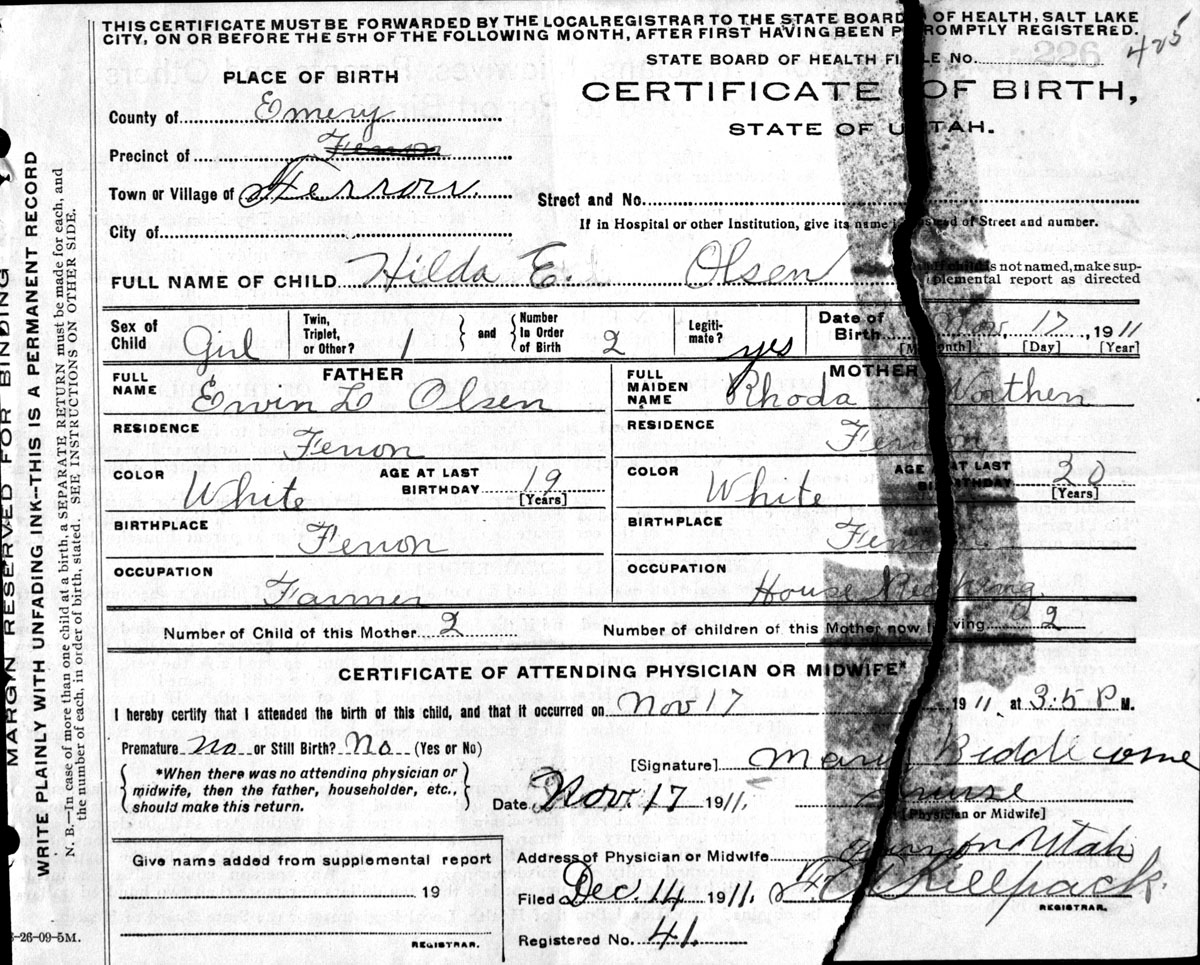 THIS CERTIFICATE MUST BE FORWARDED BY THE LOCAL REGISTRAR TO THE STATE BOARD OF HEALTH, SALT LAKE
CITY, ON OR BEFORE THE 5TH OF THE FOLLOWING MONTH, AFTER FIRST HAVING BEEN PROMPTLY REGISTERED.
STATE BOARD OF HEALTH FILE NO. 425
PLACE OF BIRTH
CERTIFICATE OF BIRTH,
STATE OF UTAH.
County of Emery
Precinct of Ferron
Town or Village of Ferron
Street and No.
City of
If in Hospital or other Institution, give its name instead of Street and number.
FULL NAME OF CHILD Hilda E. Olsen
If child is not named, make supplemental report as directed
Sex of Child Girl Twin, Triplet, or Other? 1 and Number In Order of Birth 2 Legitimate? yes Date of Birth Nov 17, 1911
[Month] [Day] [Year]
FATHER MOTHER
FULL NAME Ervin L Olsen FULL MAIDEN NAME Rhoda Worthen
RESIDENCE Ferron RESIDENCE Ferron
COLOR White AGE AT LAST BIRTHDAY 19 [Years] COLOR White AGE AT LAST BIRTHDAY 20 [Years]
BIRTHPLACE Ferron BIRTHPLACE Ferron
OCCUPATION Farmer OCCUPATION House
Number of Child of this Mother 2 Number of children of this Mother now living 2
CERTIFICATE OF ATTENDING PHYSICIAN OR MIDWIFE*
I hereby certify that I attended the birth of this child, and that it occurred on Nov 17 1911, at 3:5 P M.
Premature No or Still Birth? No (Yes or No)
[Signature] Mary Biddlecome
*When there was no attending physician or midwife, then the father, householder, etc., should make this return.
Date Nov. 17 1911. nurse
[Physician or Midwife]
Give name added from supplemental report
19
REGISTRAR.
Address of Physician or Midwife Ferron Utah
Filed Dec. 14 1911.
REGISTRAR.
Registered No. 41.
-26-09-5M.
MARGIN RESERVED FOR BINDING
WRITE PLAINLY WITH UNFADING INK--THIS IS A PERMANENT RECORD
N. B.—In case of more than one child at a birth, a SEPARATE RETURN must be made for each, and
the number of each, in order of birth, stated. SEE INSTRUCTIONS ON OTHER SIDE.